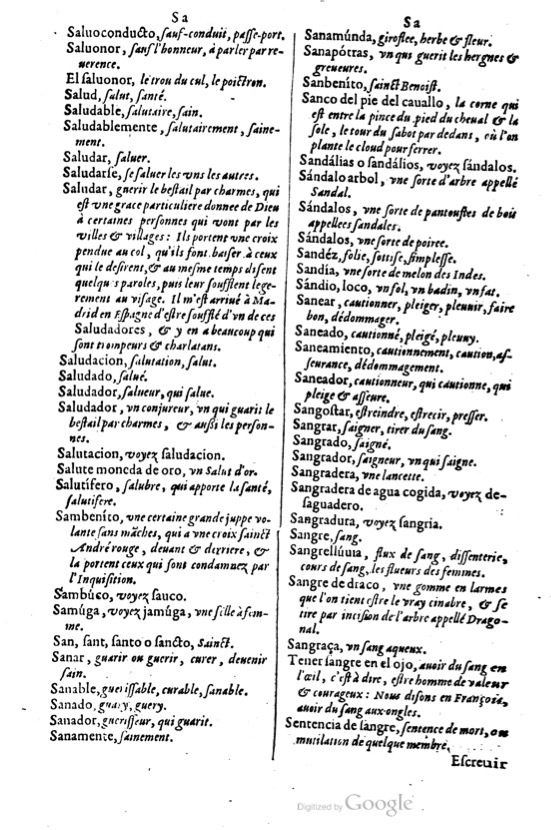 Sa
Saluoconducto, sauf-conduit, passe-port.
Saluonor, sauf l'honneur, à parler par re-
uerence.
El saluonor, le trou du cul, le poictron.
Salud, salut, santé.
Saludable, salutaire, sain.
Saludablemente, salutairement, saine-
ment.
Saludar, saluer.
Saludarse, se saluer les vns les autres.
Saludar, guerir le bestail par charmes, qui
est vne grace particuliere donnee de Dieu
à certaines personnes qui vont par les
villes & villages: Ils portent vne croix
pendue au col, qu'ils font baiser à ceux
qui le desirent, & au mesme temps disent
quelqu's paroles, puis leur soufflent lege-
rement au visage. Il m'est arriué à Ma-
drid en Espagne d'estre soufflé d'vn de ces
Saludadores, & y en a beaucoup qui
sont trompeurs & charlatans.
Saludacion, salutation, salut.
Saludado, salué.
Saludador, salueur, qui salue.
Saludador, vn conjureur, vn qui guarit le
bestail par charmes, & aussi les person-
nes.
Salutacion, voyez saludacion.
Salute moneda de oro, vn Salut d'or.
Salutífero, salubre, qui apporte la santé,
salutifere.
Sambeníto, vne certaine grande juppe vo-
lante sans mãches, qui a vne croix sainct
André rouge, deuant & derriere, &
la portent ceux qui sont condamnez par
l'Inquisition.
Sambúco, voyez sauco.
Samúga, voyez jamúga, vne selle à fem-
me.
San, sant, santo o sancto, Sainct.
Sanar, guarir ou guerir, curer, deuenir
sain.
Sanable, guerissable, curable, sanable.
Sanado, guary, guery.
Sanador, guerisseur, qui guarit.
Sanamente, sainement.
Sa
Sanamúnda, giroflee, herbe & fleur.
Sanapótras, vn qui guerit les hergnes &
greueures.
Sanbeníto, sainct Benoist.
Sanco del pie del cauallo, la corne qui
est entre la pince du pied du cheual & la
sole, le tour du sabot par dedans, où l'on
plante le cloud pour ferrer.
Sandálias o sandálios, voyez sándalos.
Sándalo arbol, vne sorte d'arbre appellé
Sandal.
Sándalos, vne sorte de pantoufles de bois
appellees sandales.
Sándalos, vne sorte de poiree.
Sandéz, folie, sottise, simplesse.
Sandía, vne sorte de melon des Indes.
Sándio, loco, vn fol, vn badin, vn fat.
Sanear, cautionner, pleiger, pleuuir, faire
bon, dédommager.
Saneado, cautionné, pleigé, pleuuy.
Saneamiento, cautionnement, caution, as-
seurance, dédommagement.
Saneador, cautionneur, qui cautionne, qui
pleige & asseure.
Sangostar, estreindre, estrecir, presser.
Sangrar, saigner, tirer du sang.
Sangrado, saigné.
Sangrador, saigneur, vn qui saigne.
Sangradera, vne lancette.
Sangradera de agua cogida, voyez de-
saguadero.
Sangradura, voyez sangria.
Sangre, sang.
Sangrellúuia, flux de sang, dissenterie,
cours de sang, les flueurs des femmes.
Sangre de draco, vne gomme en larmes
que l'on tient estre le vray cinabre, & se
tire par incision de l'arbre appellé Drago-
nal.
Sangraça, vn sang aqueux.
Tener sangre en el ojo, auoir du sang en
l'œil, c'est à dire, estre homme de valeur
& courageux: Nous disons en François,
auoir du sang aux ongles.
Sentencia de sangre, sentence de mort, ou
mutilation de quelque membre.
Escreuir
Digitized by Google